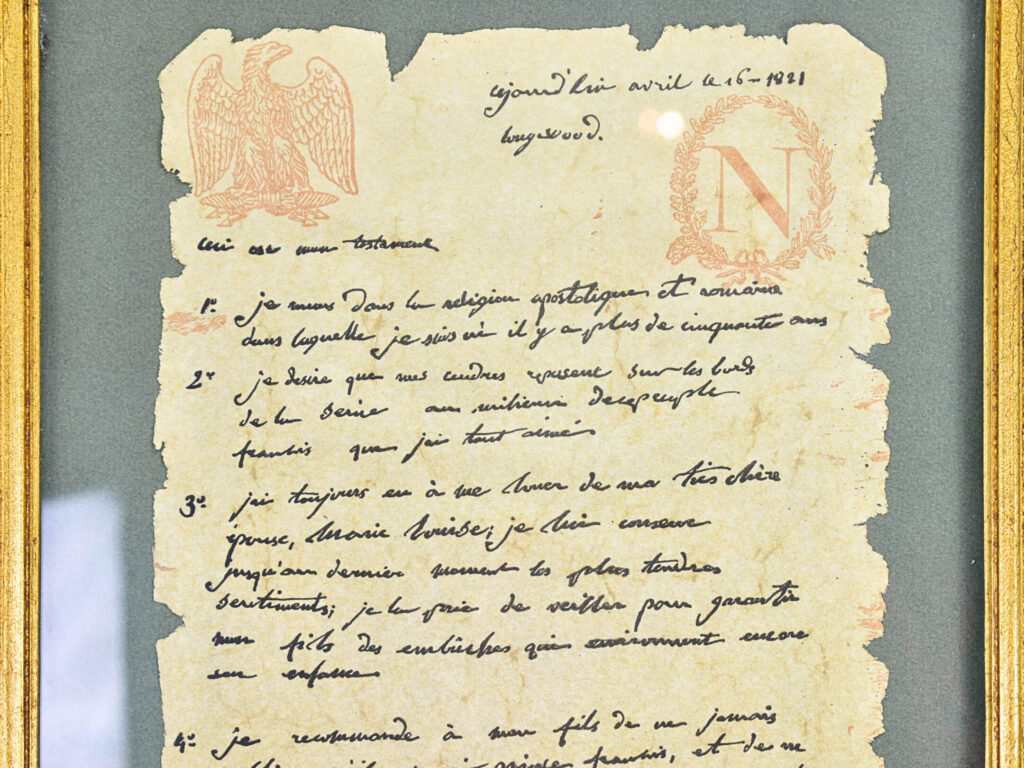 cejourd'hui avril le 16 - 1821
Longwood.
N
ceci est mon testament
1º. je meurs dans la religion apostolique et romaine
dans laquelle je suis né il y a plus de cinquante ans
2º je desire que mes cendres reposent sur les bords
de la seine au milieu de ce peuple
francais que j'ai tant aimé
3º. j'ai toujours eu à me louer de ma très chère
épouse, Marie Louise; je lui conserve
jusqu'au dernier moment les plus tendres
sentiments; je la prie de veiller pour garantir
mon fils des embûches qui environnent encore
son enfance
4º. je recommande à mon fils de ne jamais
prince francais, et de ne